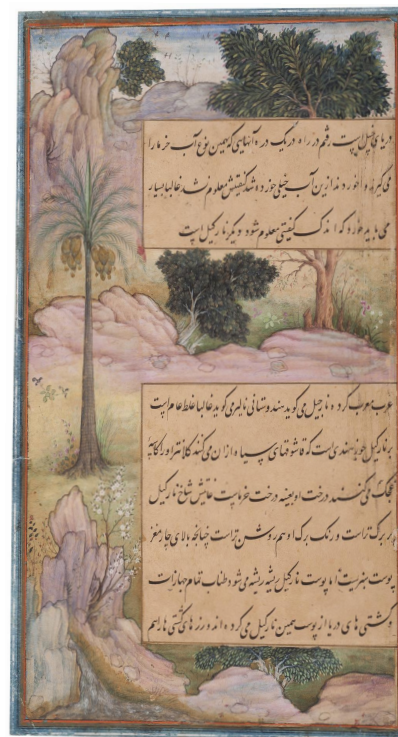 دریای نیل است رفتم در راه در یک دره آنهایی که همین نوع آب خرما را
می گیرند خوردند ازین آب خیلی خورده شد کیفیتش معلوم نشد غالبا بسیار
می باید خورد که اندک کیفیتی معلوم شود دیگر نارکیل است
عرب معرب کرده نارجیل می گوید هندوستانی نالیر می گوید غالبا غلط عام است
بر نارکیل جوز هندی است که قاشوقهای سیاه ازان می کنند کلانتر او را کاسهٔ
غجک می کنند درخت او بعینه درخت خرماست غایتش شاخ نارکیل
پر برگ تراست و رنگ برگ او هم روشن تراست چنانچه بالای چارمغز
پوست سبزیست اما پوست نارکیل ریشه ریشه می شود طناب تمام جهازات
و کشتی های دریا از پوست همین نارکیل می کرده اند درزهای کشتی ها را هم